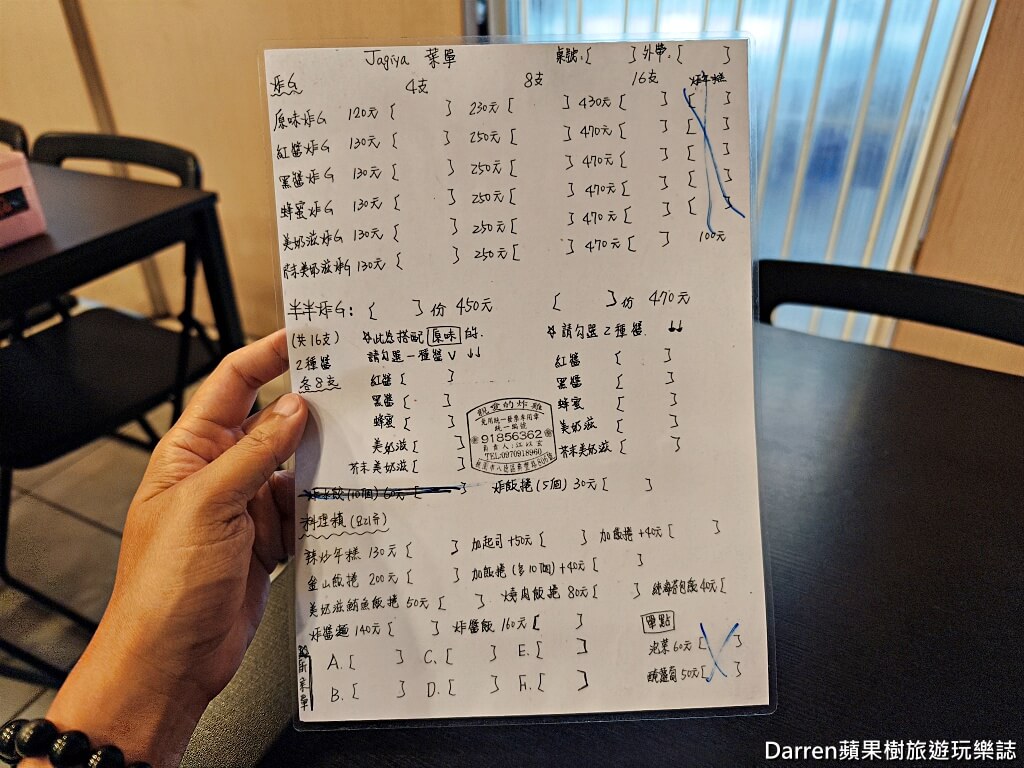 Jagiya 菜單 桌號:[ ] 外帶:[ ]
炸G 4支 8支 16支
原味炸G 120元 [ ] 230元 [ ] 430元 [ ] [ ]
紅醬炸G 130元 [ ] 250元 [ ] 470元 [ ] [ ]
黑醬炸G 130元 [ ] 250元 [ ] 470元 [ ] [ ]
蜂蜜炸G 130元 [ ] 250元 [ ] 470元 [ ] [ ]
美奶滋炸G 130元 [ ] 250元 [ ] 470元 [ ] [ ]
芥末美奶滋炸G 130元 [ ] 250元 [ ] 470元 [ ] 100元
半半炸G: [ ] 份 450元 [ ] 份 470元
(共16支) ☆此為搭配 原味 的. ☆請勾選2種醬. ↓↓
2種醬 請勾選一種醬 V ↓↓
各8支
紅醬 [ ] 紅醬 [ ]
黑醬 [ ] 黑醬 [ ]
蜂蜜 [ ] 蜂蜜 [ ]
美奶滋 [ ] 美奶滋 [ ]
芥末美奶滋 [ ] 芥末美奶滋 [ ]
親愛的炸雞
免用統一發票專用章
統一編號
91856362
負責人:江
TEL:0970918960
桃園市八德區
炸水餃(10個) 60元 [ ] 炸飯捲(5個) 30元 [ ]
料理類
辣炒年糕 130元 [ ] 加起司 +50元 [ ] 加飯捲 +40元 [ ]
釜山飯捲 200元 [ ] 加飯捲(多10個) +40元 [ ]
美奶滋鮪魚飯捲 50元 [ ] 燒肉飯捲 80元 [ ] 40元 [ ]
炸醬麵 140元 [ ] 炸醬飯 160元 [ ] 單點
泡菜 60元 [ ]
醃蘿蔔 50元 [ ]
廚房菜單
A. [ ] C. [ ] E. [ ]
B. [ ] D. [ ] F. [ ]
Darren蘋果樹旅遊玩樂誌